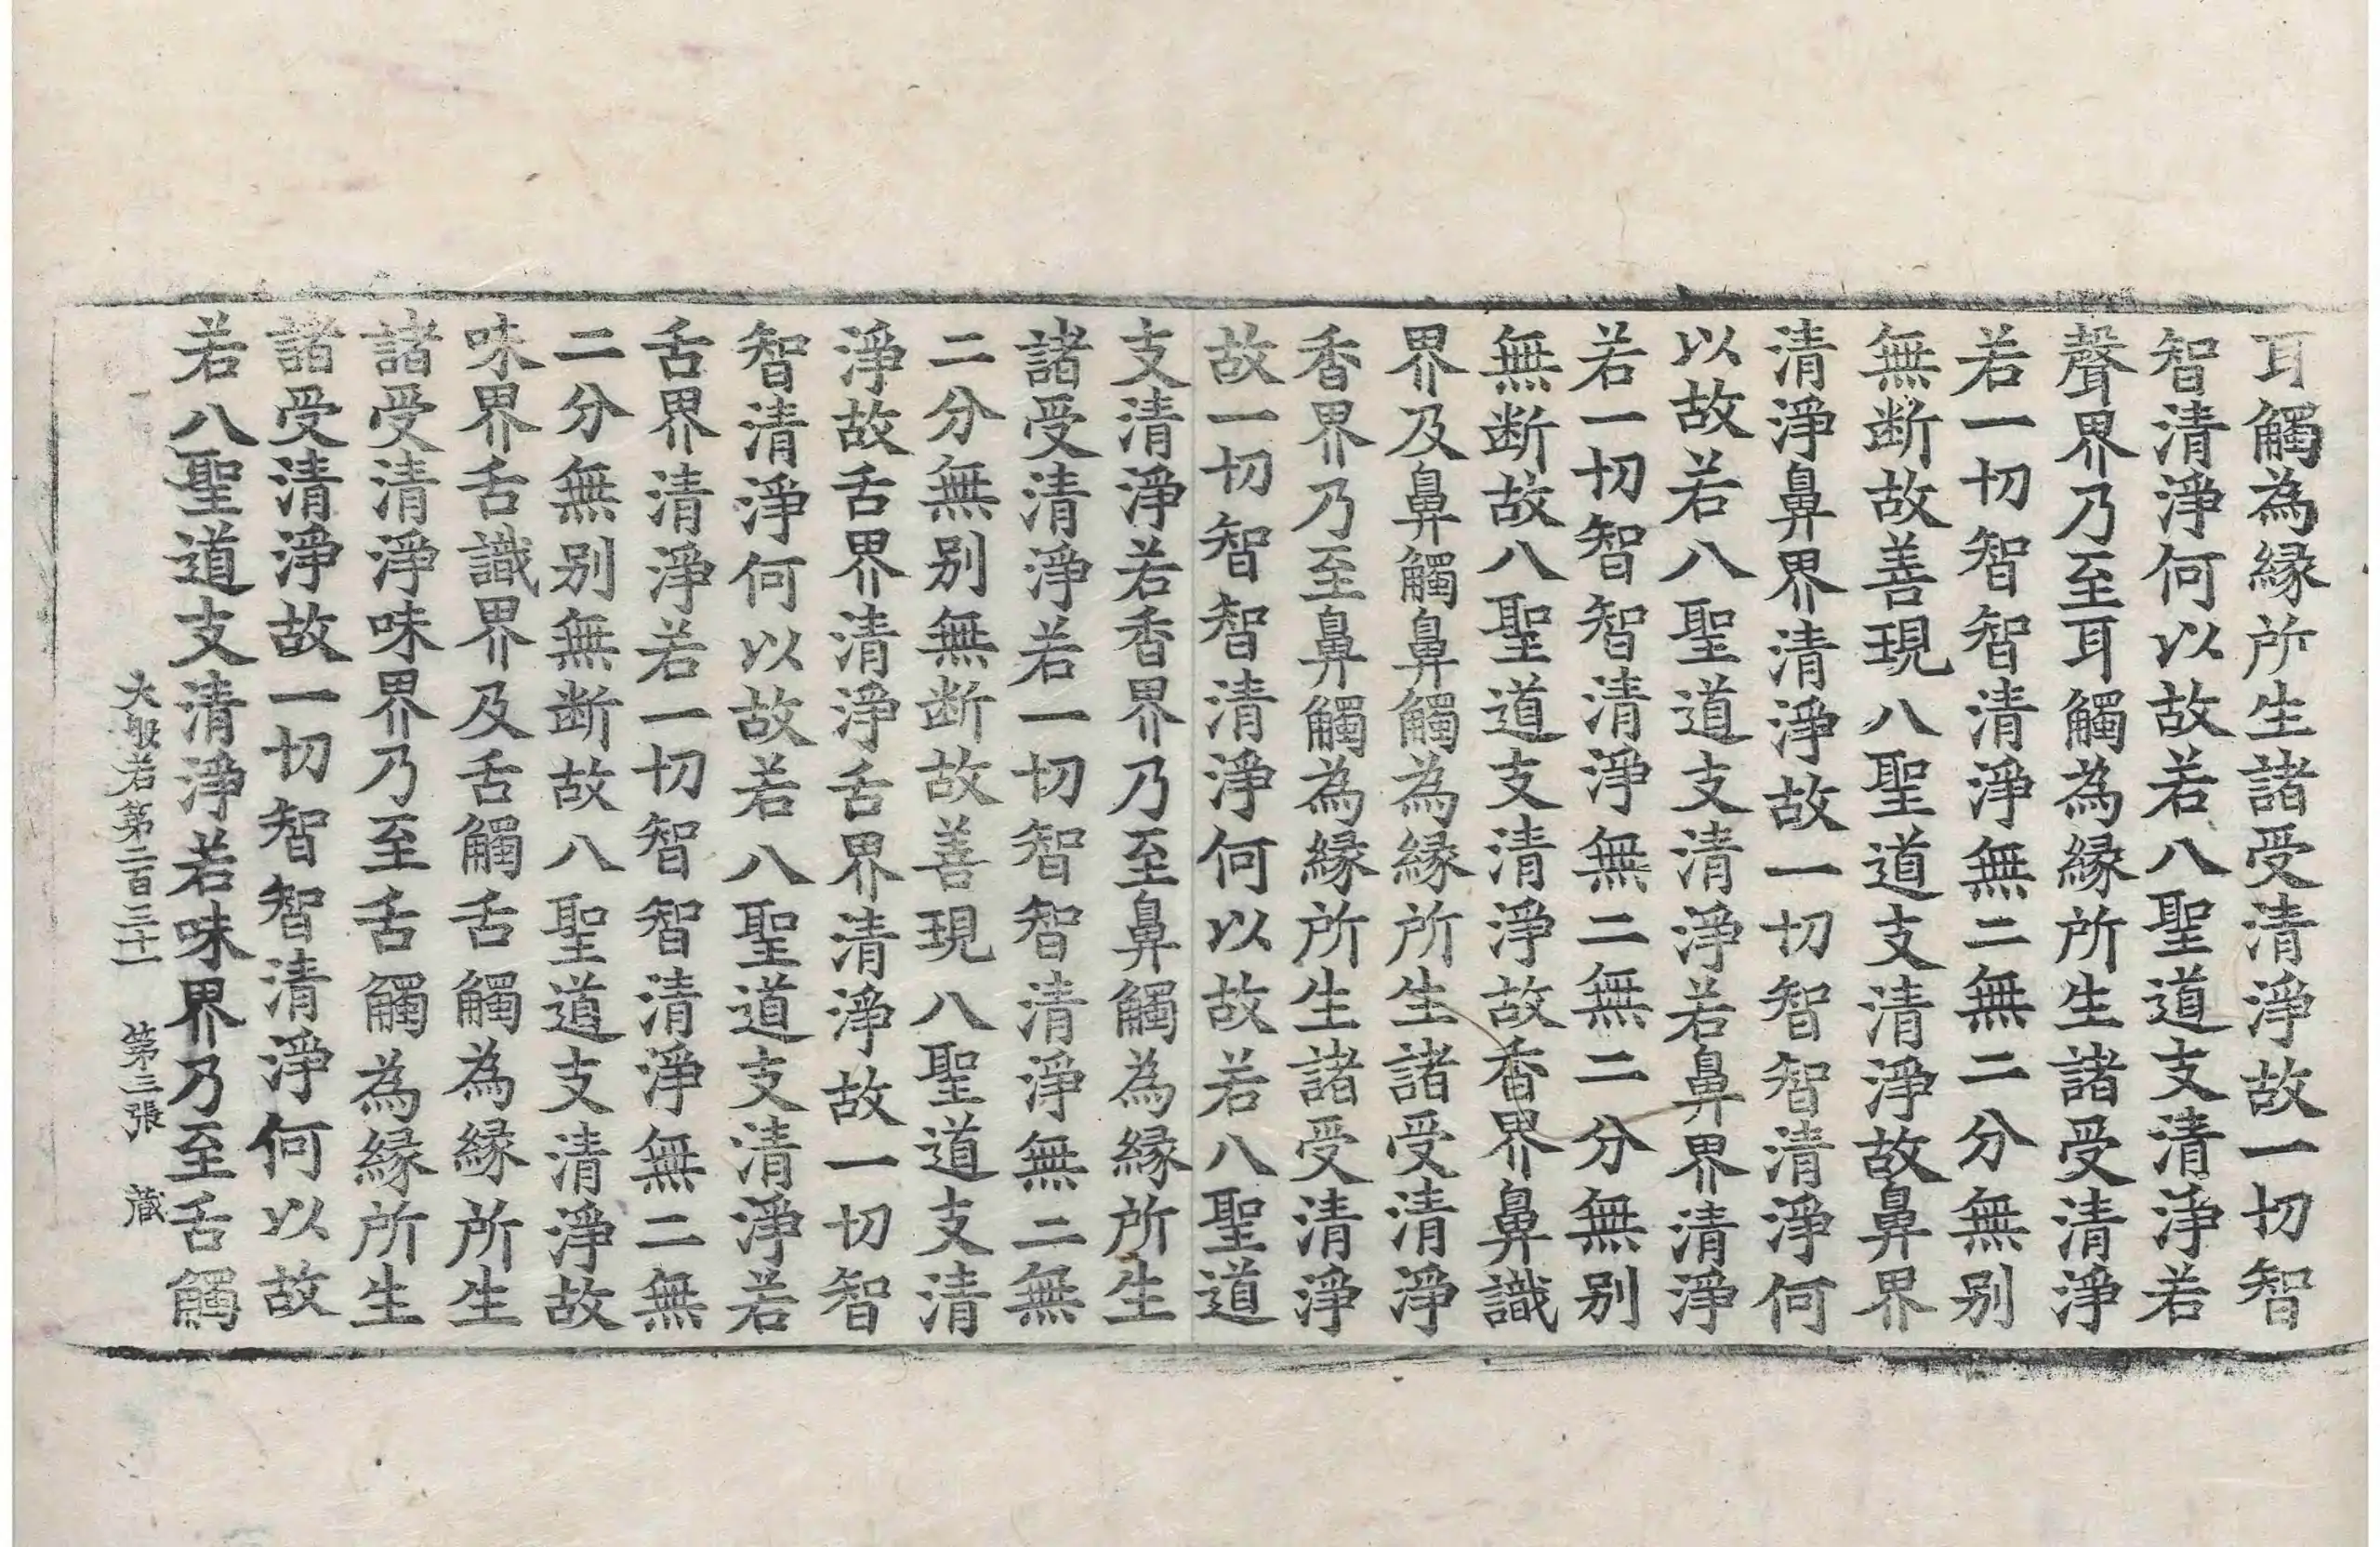 耳觸為縁所生諸受清淨故一切智
智清淨何以故若八聖道支清淨若
聲界乃至耳觸為縁所生諸受清淨
若一切智智清淨無二無二分無别
無断故善現八聖道支清淨故鼻界
清淨鼻界清淨故一切智智清淨何
以故若八聖道支清淨若鼻界清淨
若一切智智清淨無二無二分無别
無断故八聖道支清淨故香界鼻識
界及鼻觸鼻觸為縁所生諸受清淨
香界乃至鼻觸為縁所生諸受清淨
故一切智智清淨何以故若八聖道
支清淨若香界乃至鼻觸為縁所生
諸受清淨若一切智智清淨無二無
二分無别無断故善現八聖道支清
淨故舌界清淨舌界清淨故一切智
智清淨何以故若八聖道支清淨若
舌界清淨若一切智智清淨無二無
二分無别無断故八聖道支清淨故
味界舌識界及舌觸舌觸為縁所生
諸受清淨味界乃至舌觸為縁所生
諸受清淨故一切智智清淨何以故
若八聖道支清淨若味界乃至舌觸
大般若第二百三十一 第三張 藏